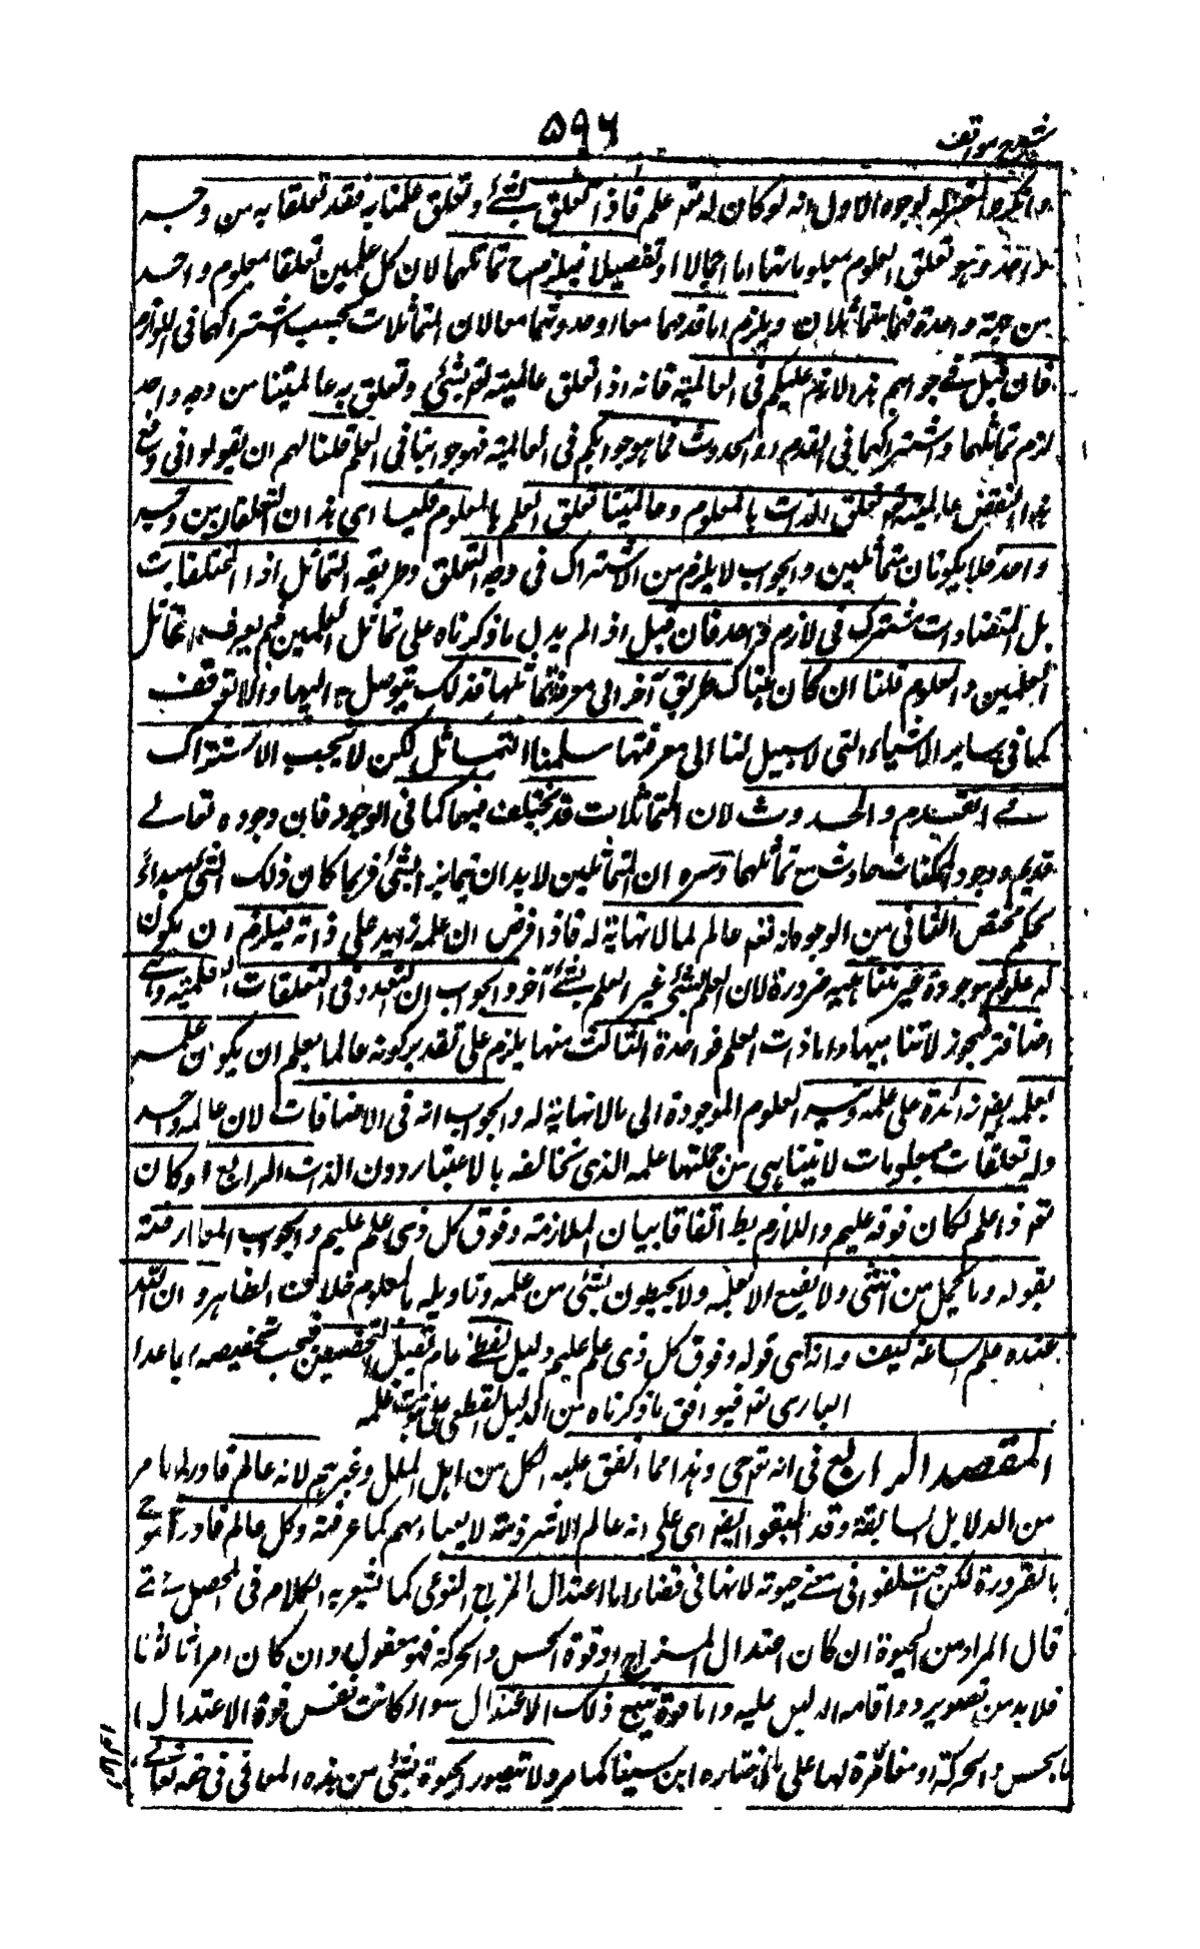 شرح مواقف
۵۹۶
وانكره المعتزلة لوجوه الاول انه لو كان له تعم علم فاذا تعلق بشئ وتعلق علمنا به فقد تعلقا به من وجه
واحد وهو تعلق العلوم بمعلوماتها اما اجمالا او تفصيلا فيلزم ح تماثلهما لان كل علمين تعلقا بمعلوم واحد
من جهة واحدة فهما متماثلان ويلزم اما قدمهما معا او حدوثهما معا لان المتماثلات يجب اشتراكها فى اللوازم
فان قيل فى جوابهم هذا لازم عليكم فى العالمية فانه اذا تعلق عالميته تعم بشئ وتعلق به عالميتنا من وجه واحد
لزم تماثلهما واشتراكهما فى القدم او الحدوث فما هو جوابكم فى العالمية فهو جوابنا فى العلم قلنا لهم ان يقولوا فى دفع
هذا النقض عالميته تعم تعلق الذات بالمعلوم وعالميتنا تعلق العلم بالمعلوم فليسا اى هذان التعلقان من وجه
واحد فلا يكونان متماثلين والجواب لا يلزم من الاشتراك فى وجه التعلق وطريقه التماثل اذ المختلفات
بل المتضادات تشترك فى لازم واحد فان قيل اذا لم يدل ما ذكرناه على تماثل العلمين فبم يعرف تماثل
العلمين والعلوم قلنا ان كان هناك طريق آخر الى معرفة تماثلها فذلك يتوصل به اليها والا توقف
كما فى سائر الاشياء التى لا سبيل لنا الى معرفتها سلمنا التماثل لكن لا يجب الاشتراك
فى القدم والحدوث لان المتماثلات قد تختلف فيهما كما فى الوجود فان وجوده تعالى
قديم ووجود الممكنات حادث مع تماثلهما وسره ان المتماثلين لا بد ان يتمايزا بشئ فربما كان ذلك الشئ مبداء
لحكم مختص الثانى من الوجوه انه تعم عالم لما لا نهاية له فاذا فرض ان علمه زايد على ذاته فيلزم ان يكون
له علوم موجودة غير متناهية ضرورة لان العلم بشئ غير العلم بشئ آخر والجواب ان التعدد فى التعلقات العلمية وهى
اضافة فيجوز لا تناهيها واما ذات العلم فواحدة الثالث منها يلزم على تقدير كونه عالما بعلم ان يكون علمه
بعلمه ايضا زائدة على علمه وتسلسل العلوم الموجودة الى ما لا نهاية له والجواب انه فى الاضافات لان علمه واحد
وله تعلقات بمعلومات لا تتناهى من جملتها علمه الذى يخالفه بالاعتبار دون الذات الرابع لو كان
تعم ذا علم لكان فوقه عليم واللازم بط اتفاقا بيان الملازمة وفوق كل ذى علم عليم والجواب المعارضة
بقوله وما تحمل من انثى ولا تضع الا بعلمه ولا يحيطون بشئ من علمه وتاويله بالمعلوم خلاف الظاهر وان الله
عنده علم الساعة كيف وانه اى قوله وفوق كل ذى علم عليم دليل لفظى عام يقبل التخصيص فيجب تخصيصه بما عدا
البارى تعم فيوافق ما ذكرناه من الدليل القطعى على ثبوت علمه
المقصد الرابع فى انه تعم حى وهذا مما اتفق عليه الكل من اهل الملل وغيرهم لانه عالم قادر لما مر
من الدلايل السابقة وقد اطبقوا ايضا اى على انه عالم الا شرذمة لا يعبأ بهم كما عرفته وكل عالم قادر فهو حى
بالضرورة لكن اختلفوا فى معنى حيوته لانها فى حقنا اما اعتدال المزاج النوعى كما يشعر به الكلام فى المحصل حيث
قال المراد من الحيوة ان كان اعتدال المزاج او قوة الحس والحركة فهو معقول وان كان امرا ثالثا
فلا بد من تصويره واقامة الدليل عليه واما قوة تتبع ذلك الاعتدال سواء كانت نفس قوة الاعتدال ا
بالحس والحركة او مغائرة لها على ما اختاره ابن سينا كما مر ولا تتصور الحيوة بشئ من هذه المعانى فى حقه تعالى